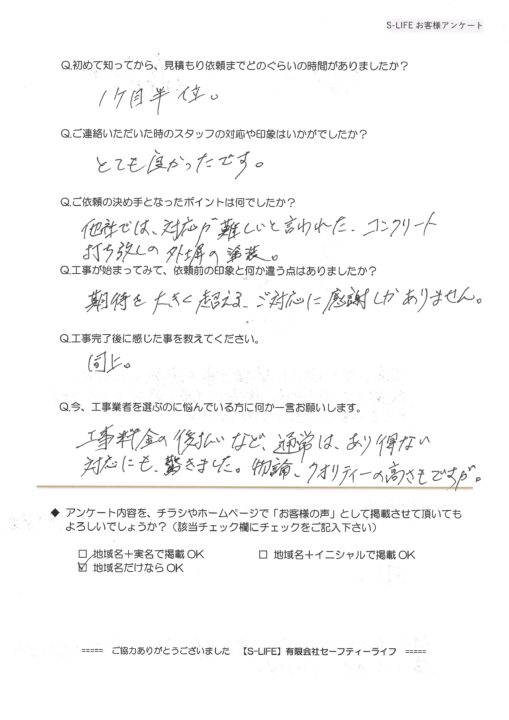 S-LIFE お客様アンケート
Q.初めて知ってから、見積もり依頼までどのぐらいの時間がありましたか？
1ヶ月半位。
Q.ご連絡いただいた時のスタッフの対応や印象はいかがでしたか？
とても良かったです。
Q.ご依頼の決め手となったポイントは何でしたか？
他社では、対応が難しいと言われた、コンクリート
打ち放しの外塀の塗装。
Q.工事が始まってみて、依頼前の印象と何か違う点はありましたか？
期待を大きく超える、ご対応に感謝しかありません。
Q.工事完了後に感じた事を教えてください。
同上。
Q.今、工事業者を選ぶのに悩んでいる方に何か一言お願いします。
工事料金の後払いなど、通常は、あり得ない
対応にも、驚きました。勿論、クオリティーの高さもですが。
◆ アンケート内容を、チラシやホームページで「お客様の声」として掲載させて頂いても
よろしいでしょうか？（該当チェック欄にチェックをご記入下さい）
□ 地域名＋実名で掲載 OK □ 地域名＋イニシャルで掲載 OK
☑ 地域名だけなら OK
===== ご協力ありがとうございました 【S-LIFE】有限会社セーフティーライフ =====